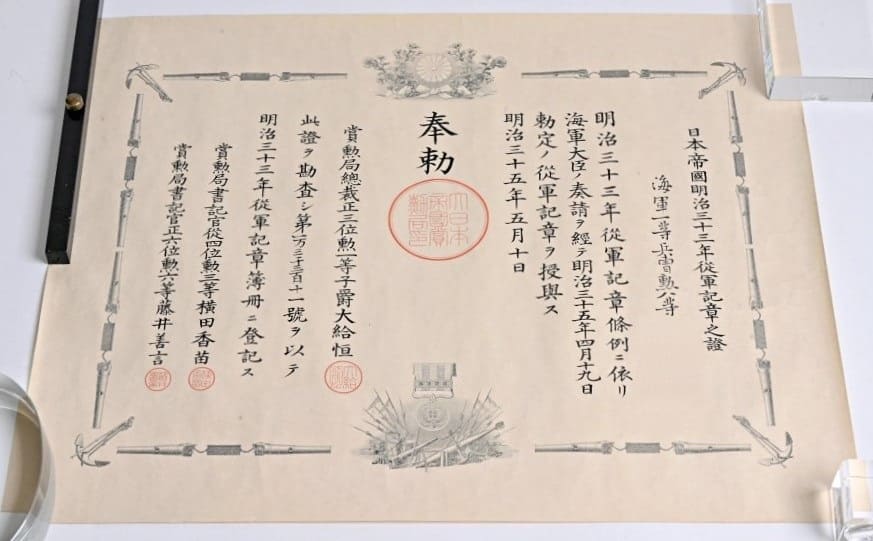 日本帝國明治三十三年從軍記章之證
海軍一等兵曹勲八等
明治三十三年從軍記章條例ニ依リ
海軍大臣ノ奏請ヲ經テ明治三十五年四月十九日
勅定ノ從軍記章ヲ授與ス
明治三十五年五月十日
奉勅
賞勲局總裁正三位勲一等子爵大給恒
此證ヲ勘査シ第一万三千三百十一號ヲ以テ
明治三十三年從軍記章簿册ニ登記ス
賞勲局書記官從四位勲三等横田香苗
賞勲局書記官正六位勲六等藤井善言